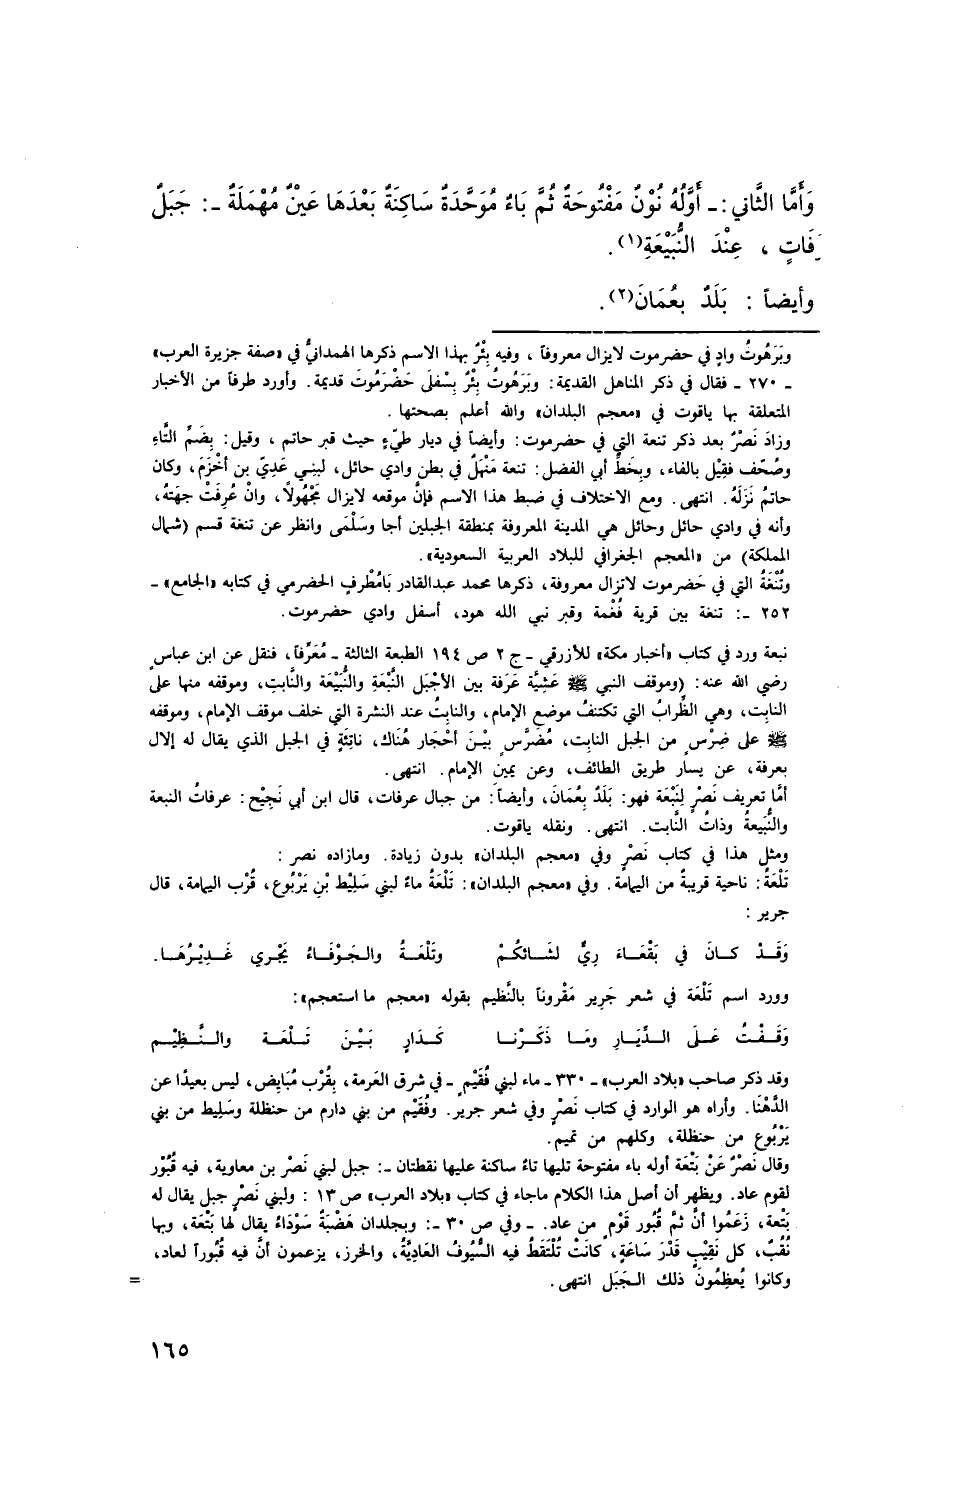 وَأَمَّا الثَّاني :ـ أَوَّلُهُ نُوْنٌ مَفْتُوحَةٌ ثُمَّ بَاءٌ مُوَحَّدَةٌ سَاكِنَةٌ بَعْدَهَا عَيْنٌ مُهْمَلَةٌ ـ: جَبَلٌ
رَفَاتٍ ، عِنْدَ النُّبَيْعَةِ(١).
وأيضاً : بَلَدٌ بعُمَانَ(٢).
وبَرَهُوتُ وادٍ في حضرموت لايزال معروفاً ، وفيه بِئْرٌ بهذا الاسم ذكرها الهمدانيُّ في «صفة جزيرة العرب»
ـ ٢٧٠ ـ فقال في ذكر المناهل القديمة: وبَرَهُوتُ بِئْرٌ بِسْفلَى حَضْرَمُوتَ قديمة. وأورد طرفاً من الأخبار
المتعلقة بها ياقوت في «معجم البلدان» والله أعلم بصحتها .
وزادَ نَصْرٌ بعد ذكر تنعة التي في حضرموت: وأيضاً في ديار طيّءٍ حيث قبر حاتم ، وقيل: بِضَمِّ التَّاءِ
وصُحّف فقِيْل بالفاء، وبِخَطِّ أبي الفضل: تنعة مَنْهَلٌ في بطن وادي حائل، لبنِي عَدِيّ بن أخْزَمَ، وكان
حاتمُ نَزَلَهُ. انتهى. ومع الاختلاف في ضبط هذا الاسم فإنَّ موقعه لايزال مَجْهُولًا، وانْ عُرِفَتْ جهَتهُ،
وأنه في وادي حائل وحائل هي المدينة المعروفة بمنطقة الجبلين أجا وسَلْمَى وانظر عن تنغة قسم (شمال
المملكة) من «المعجم الجغرافي للبلاد العربية السعودية».
وتُنْعَةُ التي في حَضرموت لاتزال معروفة، ذكرها محمد عبدالقادر بَامُطْرفٍ الحضرمي في كتابه «الجامع» ـ
٢٥٢ ـ: تنغة بين قرية فُغْمة وقبر نبي الله هود، أسفل وادي حضرموت.
نبعة ورد في كتاب «أخبار مكة» للأزرقي ـ ج ٢ ص ١٩٤ الطبعة الثالثة ـ مُعَرَّفاً، فنقل عن ابن عباس
رضي الله عنه: (وموقف النبي ﷺ عَشِيَّةَ عَرَفة بين الأَجْبَلِ النَّبْعَةِ والنُّبَيْعَة والنَّابت، وموقفه منها على
النابِت، وهي الظِّرابُ التي تكتنفُ موضع الإمام، والنابتُ عند النشرة التي خلف موقف الإمام، وموقفه
ﷺ على ضِرْسٍ من الجبل النابت، مُضَرَّسٍ بيْنَ أحْجَار هُنَاكَ، ناتِئَةٍ في الجبل الذي يقال له إلال
بعرفة، عن يسار طريق الطائف، وعن يمين الإمام. انتهى.
أمَّا تعريف نَصْرٍ لِنَبْعَة فهو: بَلَدٌ بِعُمَانَ، وأيضاً: من جبال عرفات، قال ابن أبي نَجِيْح: عرفاتُ النبعة
والنُّبَيعةُ وذاتُ النَّابت. انتهى. ونقله ياقوت.
ومثل هذا في كتاب نَصْرٍ وفي «معجم البلدان» بدون زيادة. ومازاده نصر :
تَلْعَةُ: ناحية قريبةٌ من اليمامة. وفي «معجم البلدان»: تَلْعَةُ ماءٌ لبني سَلِيْط بْنِ يَرْبُوعٍ، قُرْب اليمامة، قال
جرير :
وَقَدْ كانَ في بَقْعَاءَ رِيٌّ لشَائكُمْ وتَلْعَةُ والجَوْفَاءُ يَجْري غَدِيْرُهَا.
وورد اسم تَلْعَة في شعر جَرِير مَقْروناً بالنَّظيم بقوله «معجم ما استعجم»:
وَقَفْتُ عَلَى الدِّيَارِ ومَا ذَكَرْنا كَدَارٍ بَيْنَ تَلْعَة والنَّظِيْمِ
وقد ذكر صاحب «بلاد العرب» ـ ٣٣٠ ـ ماء لبني فُقَيْمٍ ـ في شرق العَرمة، بِقُرْب مُبَايِض، ليس بعيدًا عن
الدَّهْنَا. وأراه هو الوارد في كتاب نَصْرٍ وفي شعر جرير. وفُقَيْم من بني دارم من حنظلة وسَلِيط من بني
يَرْبُوعٍ من حنظلة، وكلهم من تميم.
وقال نَصْرٌ عَنْ بَتْعَة أوله باء مفتوحة تليها تاءٌ ساكنة عليها نقطتان ـ: جبل لبني نَصْر بن معاوية، فيه قُبُوْر
لقوم عاد. ويظهر أن أصل هذا الكلام ماجاء في كتاب «بلاد العرب» ص ١٣ : ولبني نَصْرٍ جبل يقال له
بَتْعة، زَعَمُوا أنَّ ثَمَّ قُبُور قَوْمٍ من عاد. ـ وفي ص ٣٠ ـ: وبجلدان هَضَبةٌ سَوْدَاءُ يقال لها بَتْعَة، وبها
نُقُبٌ، كل نَقِيْبٍ قَدْرَ سَاعَةٍ، كَانَتْ تُلْتَقطُ فيه السُّيُوفُ العَاديَّةُ، والخرز، يزعمون أنَّ فيه قُبُوراً لعاد،
وكانوا يُعظِمُونَ ذلك الـجَبَل انتهى.
=
١٦٥